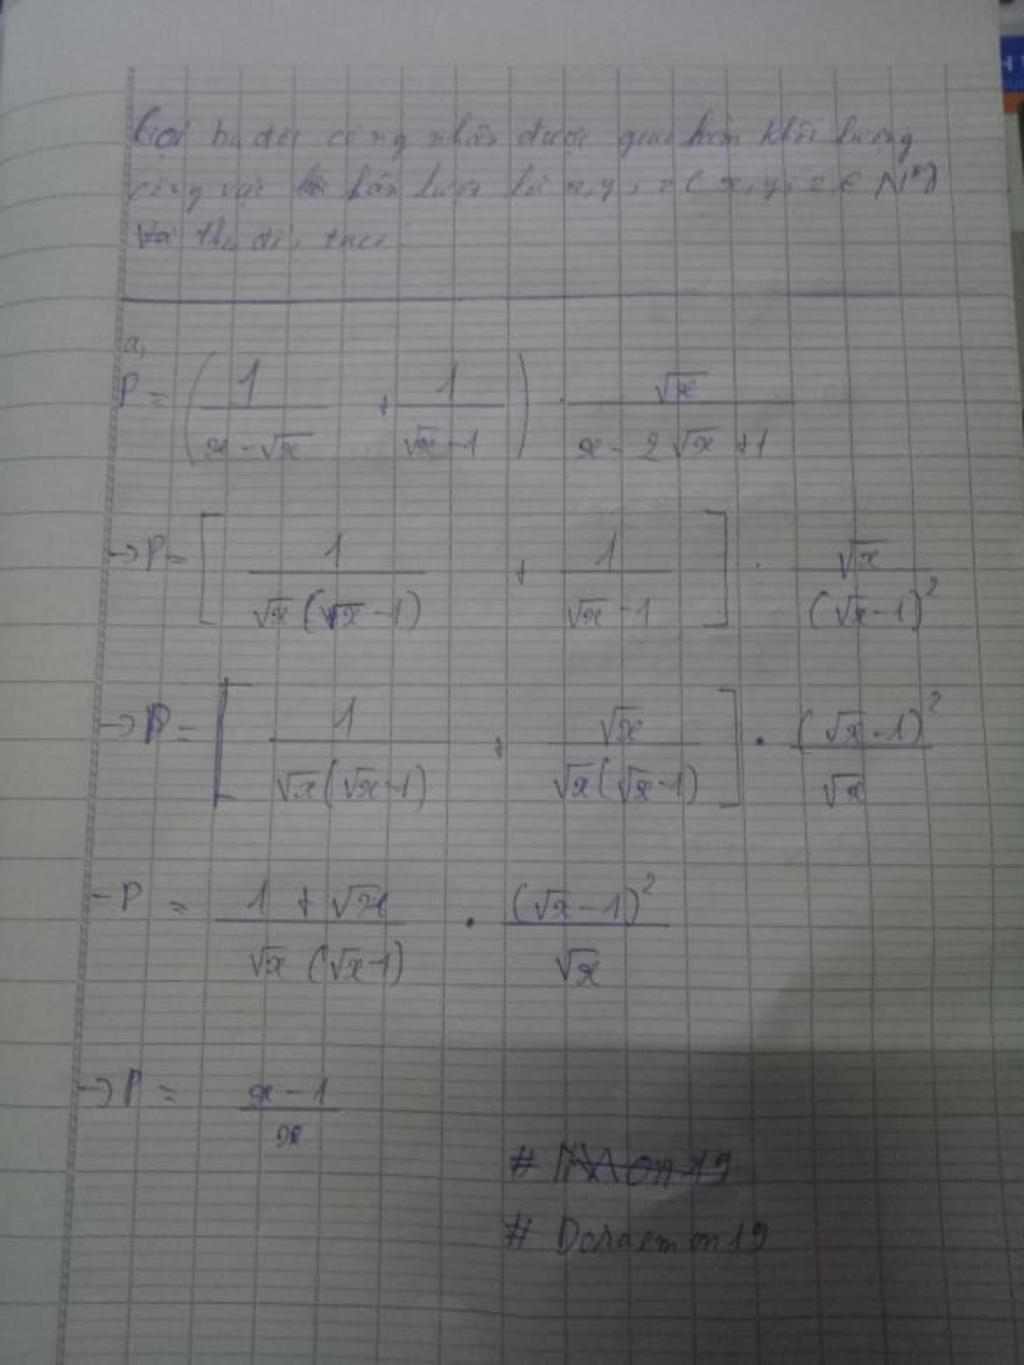 Gọi ba đội công nhân được giao làm khối lượng
công việc lần lượt là x, y, z ( x, y, z ∈ N*)
Và
a,
P = ( 1 / (x - √x) + 1 / (√x - 1) ) . √x / (x - 2√x + 1)
→ P = [ 1 / (√x (√x - 1)) + 1 / (√x - 1) ] . √x / (√x - 1)²
→ P = [ 1 / (√x (√x - 1)) + √x / (√x (√x - 1)) ] . (√x - 1)² / √x
- P = (1 + √x) / (√x (√x - 1)) . (√x - 1)² / √x
→ P = (x - 1) / x
# Doraemon19